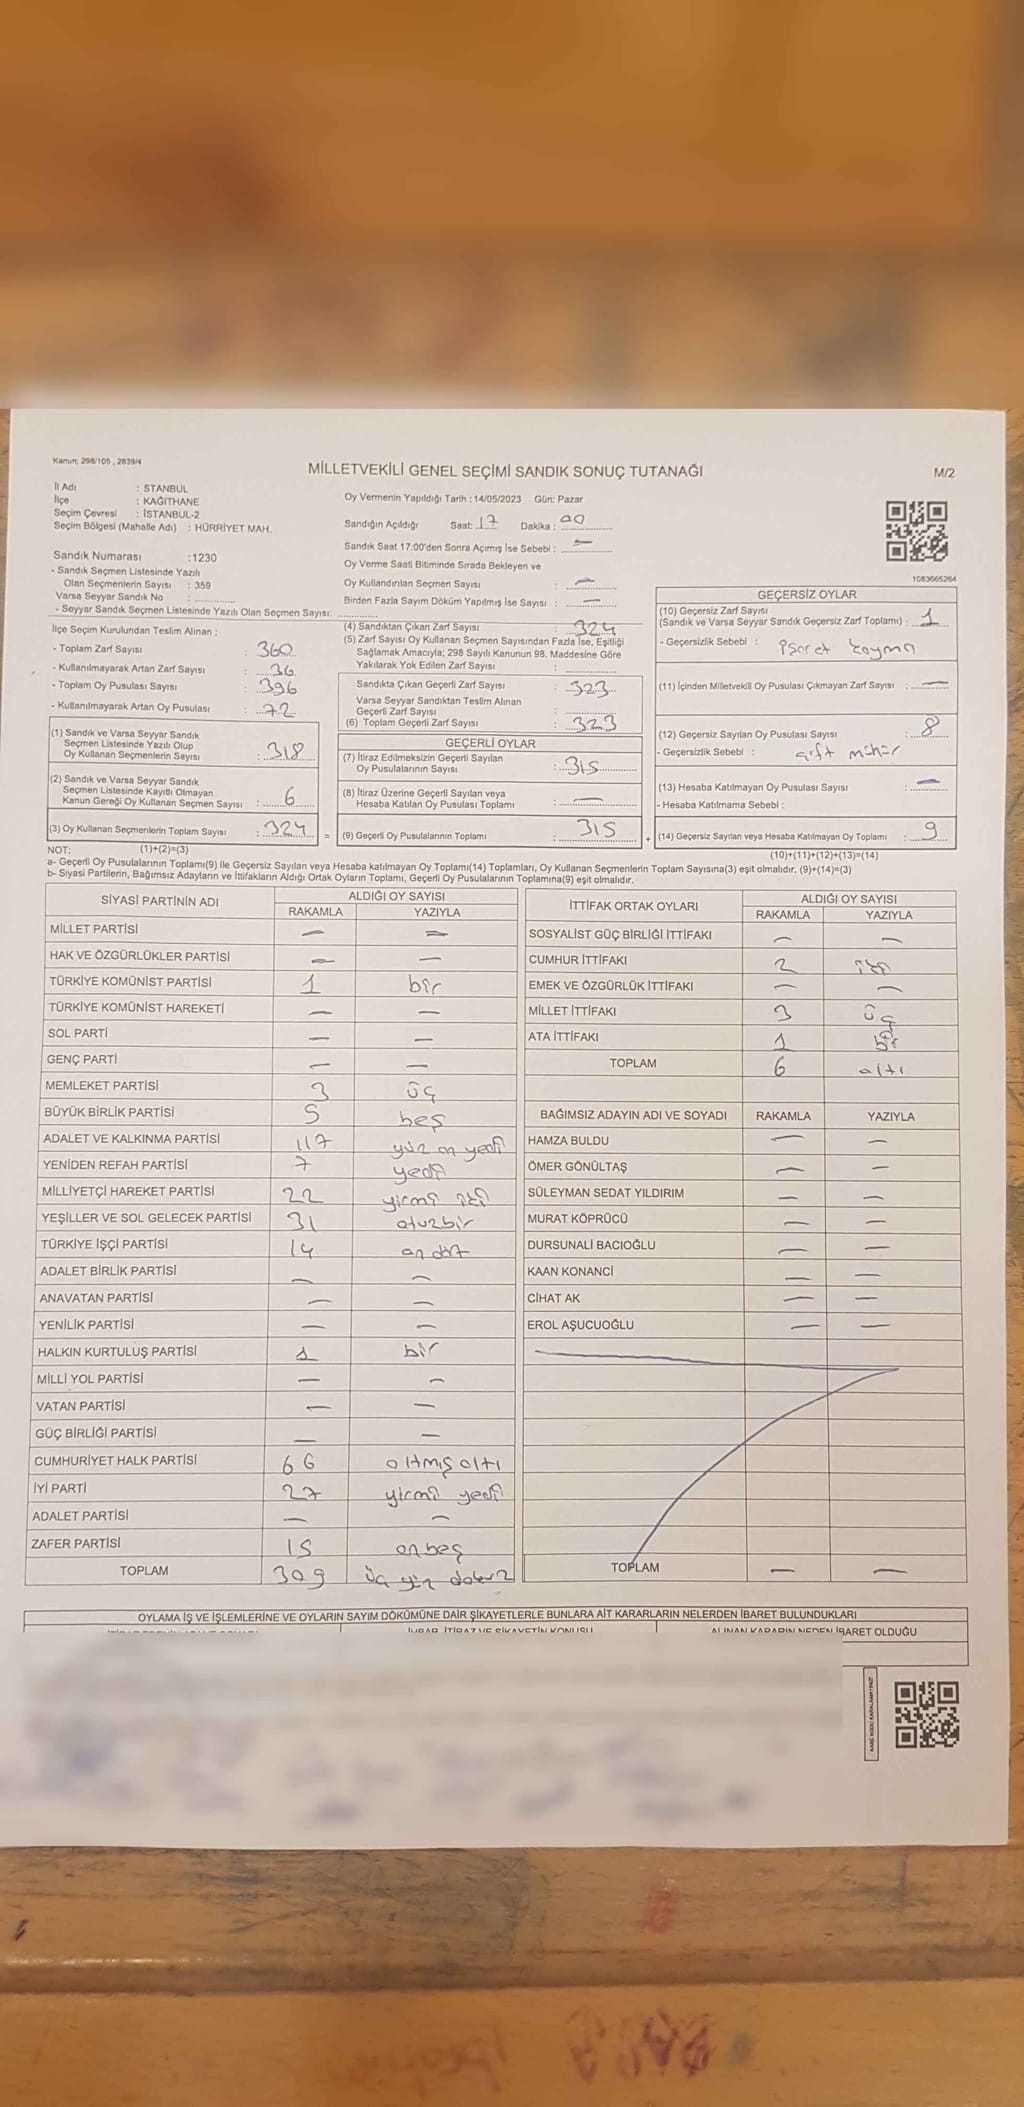 Kanun; 298/105 , 2839/4
MİLLETVEKİLİ GENEL SEÇİMİ SANDIK SONUÇ TUTANAĞI
M/2
İl Adı : STANBUL
İlçe : KAĞITHANE
Seçim Çevresi : İSTANBUL-2
Seçim Bölgesi (Mahalle Adı) : HÜRRİYET MAH.
Sandık Numarası :1230
- Sandık Seçmen Listesinde Yazılı
Olan Seçmenlerin Sayısı : 359
Varsa Seyyar Sandık No :
- Seyyar Sandık Seçmen Listesinde Yazılı Olan Seçmen Sayısı:
İlçe Seçim Kurulundan Teslim Alınan ;
- Toplam Zarf Sayısı : 360
- Kullanılmayarak Artan Zarf Sayısı : 36
- Toplam Oy Pusulası Sayısı : 396
- Kullanılmayarak Artan Oy Pusulası : 72
(1) Sandık ve Varsa Seyyar Sandık
Seçmen Listesinde Yazılı Olup
Oy Kullanan Seçmenlerin Sayısı : 318
(2) Sandık ve Varsa Seyyar Sandık
Seçmen Listesinde Kayıtlı Olmayan
Kanun Gereği Oy Kullanan Seçmen Sayısı : 6
(3) Oy Kullanan Seçmenlerin Toplam Sayısı : 324
Oy Vermenin Yapıldığı Tarih : 14/05/2023 Gün: Pazar
Sandığın Açıldığı Saat: 17 Dakika : 00
Sandık Saat 17:00'den Sonra Açımış İse Sebebi : —
Oy Verme Saati Bitiminde Sırada Bekleyen ve
Oy Kullandırılan Seçmen Sayısı : —
Birden Fazla Sayım Döküm Yapılmış İse Sayısı : —
(4) Sandıktan Çıkan Zarf Sayısı : 324
(5) Zarf Sayısı Oy Kullanan Seçmen Sayısından Fazla İse, Eşitliği
Sağlamak Amacıyla; 298 Sayılı Kanunun 98. Maddesine Göre
Yakılarak Yok Edilen Zarf Sayısı :
Sandıkta Çıkan Geçerli Zarf Sayısı : 323
Varsa Seyyar Sandıktan Teslim Alınan
Geçerli Zarf Sayısı :
(6) Toplam Geçerli Zarf Sayısı : 323
GEÇERLİ OYLAR
(7) İtiraz Edilmeksizin Geçerli Sayılan
Oy Pusulalarının Sayısı : 315
(8) İtiraz Üzerine Geçerli Sayılan veya
Hesaba Katılan Oy Pusulası Toplamı : —
= (9) Geçerli Oy Pusulalarının Toplamı : 315
1083665264
GEÇERSİZ OYLAR
(10) Geçersiz Zarf Sayısı
(Sandık ve Varsa Seyyar Sandık Geçersiz Zarf Toplamı) : 1
- Geçersizlik Sebebi : işaret koyma
(11) İçinden Milletvekili Oy Pusulası Çıkmayan Zarf Sayısı : —
(12) Geçersiz Sayılan Oy Pusulası Sayısı : 8
- Geçersizlik Sebebi : çift mühür
(13) Hesaba Katılmayan Oy Pusulası Sayısı : —
- Hesaba Katılmama Sebebi :
+ (14) Geçersiz Sayılan veya Hesaba Katılmayan Oy Toplamı : 9
NOT: (1)+(2)=(3)
(10)+(11)+(12)+(13)=(14)
a- Geçerli Oy Pusulalarının Toplamı(9) ile Geçersiz Sayılan veya Hesaba katılmayan Oy Toplamı(14) Toplamları, Oy Kullanan Seçmenlerin Toplam Sayısına(3) eşit olmalıdır. (9)+(14)=(3)
b- Siyasi Partilerin, Bağımsız Adayların ve İttifakların Aldığı Ortak Oyların Toplamı, Geçerli Oy Pusulalarının Toplamına(9) eşit olmalıdır.
SİYASİ PARTİNİN ADI ALDIĞI OY SAYISI
RAKAMLA YAZIYLA
MİLLET PARTİSİ — —
HAK VE ÖZGÜRLÜKLER PARTİSİ — —
TÜRKİYE KOMÜNİST PARTİSİ 1 bir
TÜRKİYE KOMÜNİST HAREKETİ — —
SOL PARTİ — —
GENÇ PARTİ — —
MEMLEKET PARTİSİ 3 üç
BÜYÜK BİRLİK PARTİSİ 5 beş
ADALET VE KALKINMA PARTİSİ 117 yüz on yedi
YENİDEN REFAH PARTİSİ 7 yedi
MİLLİYETÇİ HAREKET PARTİSİ 22 yirmi iki
YEŞİLLER VE SOL GELECEK PARTİSİ 31 otuzbir
TÜRKİYE İŞÇİ PARTİSİ 14 on dört
ADALET BİRLİK PARTİSİ — —
ANAVATAN PARTİSİ — —
YENİLİK PARTİSİ — —
HALKIN KURTULUŞ PARTİSİ 1 bir
MİLLİ YOL PARTİSİ — —
VATAN PARTİSİ — —
GÜÇ BİRLİĞİ PARTİSİ — —
CUMHURİYET HALK PARTİSİ 66 altmış altı
İYİ PARTİ 27 yirmi yedi
ADALET PARTİSİ — —
ZAFER PARTİSİ 15 onbeş
TOPLAM 309 üç yüz dokuz
İTTİFAK ORTAK OYLARI ALDIĞI OY SAYISI
RAKAMLA YAZIYLA
SOSYALİST GÜÇ BİRLİĞİ İTTİFAKI — —
CUMHUR İTTİFAKI 2 iki
EMEK VE ÖZGÜRLÜK İTTİFAKI — —
MİLLET İTTİFAKI 3 üç
ATA İTTİFAKI 1 bir
TOPLAM 6 altı
BAĞIMSIZ ADAYIN ADI VE SOYADI RAKAMLA YAZIYLA
HAMZA BULDU — —
ÖMER GÖNÜLTAŞ — —
SÜLEYMAN SEDAT YILDIRIM — —
MURAT KÖPRÜCÜ — —
DURSUNALİ BACIOĞLU — —
KAAN KONANCİ — —
CİHAT AK — —
EROL AŞUCUOĞLU — —
TOPLAM — —
OYLAMA İŞ VE İŞLEMLERİNE VE OYLARIN SAYIM DÖKÜMÜNE DAİR ŞİKAYETLERLE BUNLARA AİT KARARLARIN NELERDEN İBARET BULUNDUKLARI
İHBAR, İTİRAZ VE ŞİKAYETİN KONUSU ALINAN KARARIN NEDEN İBARET OLDUĞU
KARE KODU KARALAMAYINIZ!